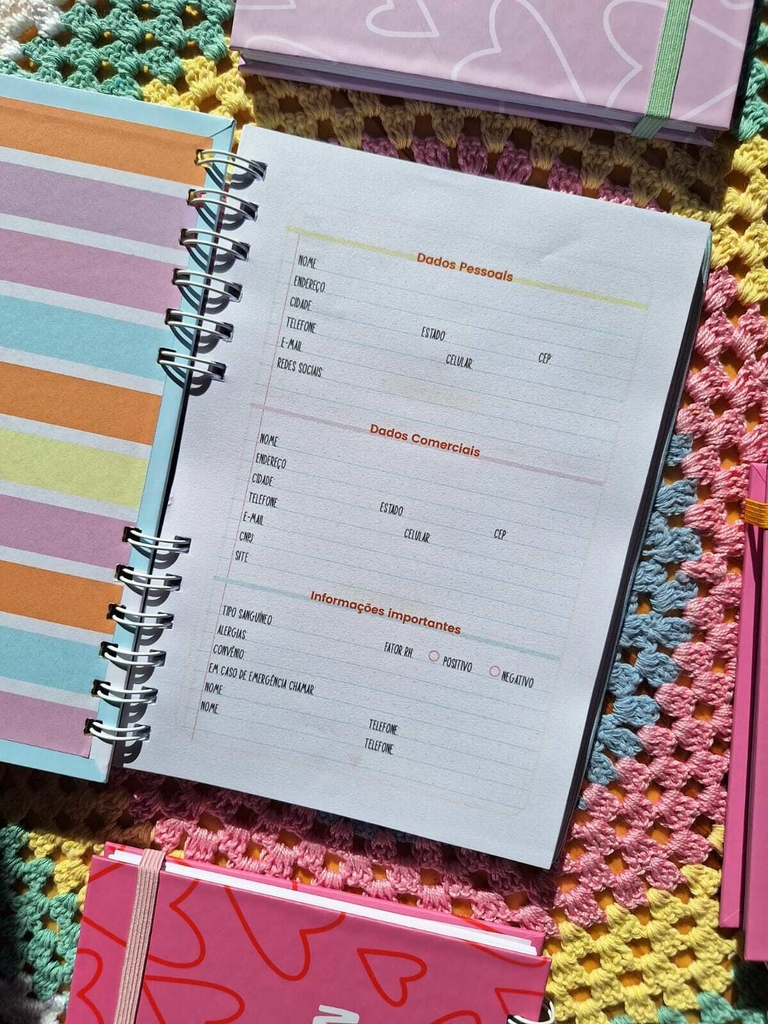 Dados Pessoais
NOME
ENDEREÇO
CIDADE ESTADO CEP
TELEFONE CELULAR
E-MAIL
REDES SOCIAIS
Dados Comerciais
NOME
ENDEREÇO
CIDADE ESTADO CEP
TELEFONE CELULAR
E-MAIL
CNPJ
SITE
Informações importantes
TIPO SANGUÍNEO FATOR RH POSITIVO NEGATIVO
ALERGIAS
CONVÊNIO
EM CASO DE EMERGÊNCIA CHAMAR
NOME TELEFONE
NOME TELEFONE